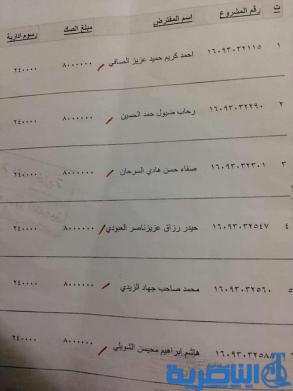 ت رقم المشروع اسم المقترض مبلغ الصك رسوم ادارية
١ ١٦٠٩٣٠٣٢١١٥ احمد كريم حميد عزيز الصافي ٨٠٠٠٠٠٠ ٢٤٠٠٠٠
٢ ١٦٠٩٣٠٣٢٢٩٠ رحاب ضيول حمد الحسين ٨٠٠٠٠٠٠ ٢٤٠٠٠٠
٣ ١٦٠٩٣٠٣٢٣٠١ صفاء حسن هادي السرحان ٨٠٠٠٠٠٠ ٢٤٠٠٠٠
٤ ١٦٠٩٣٠٣٢٥٤٧ حيدر رزاق عزيزناصر العبودي ٨٠٠٠٠٠٠ ٢٤٠٠٠٠
٥ ١٦٠٩٣٠٣٢٥٦٠ محمد صاحب جهاد الزيدي ٨٠٠٠٠٠٠ ٢٤٠٠٠٠
١٦٠٩٣٠٣٢٥٨٨ هاشم ابراهيم محيسن الشويلي ٨٠٠٠٠٠٠ ٢٤٠٠٠٠
الناصرية